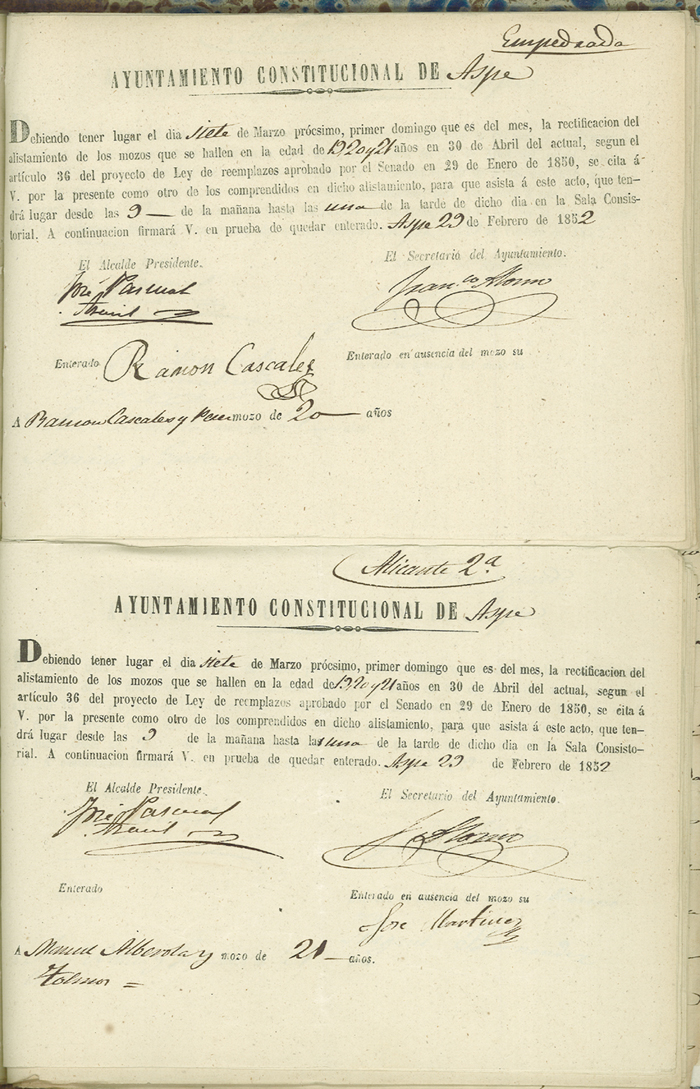 Empedrada
AYUNTAMIENTO CONSTITUCIONAL DE Aspe
Debiendo tener lugar el dia siete de Marzo prócsimo, primer domingo que es del mes, la rectificacion del
alistamiento de los mozos que se hallen en la edad de 19, 20 y 21 años en 30 de Abril del actual, segun el
artículo 36 del proyecto de Ley de reemplazos aprobado por el Senado en 29 de Enero de 1850, se cita á
V. por la presente como otro de los comprendidos en dicho alistamiento, para que asista á este acto, que ten-
drá lugar desde las 9 de la mañana hasta las una de la tarde de dicho dia en la Sala Consis-
torial. A continuacion firmará V. en prueba de quedar enterado. Aspe 29 de Febrero de 1852
El Alcalde Presidente.
El Secretario del Ayuntamiento.
José Pascual
Franco Alonso
Enterado Ramon Cascales
Enterado en ausencia del mozo su
A Ramon Cascales y mozo de 20 años
Alicante 2a
AYUNTAMIENTO CONSTITUCIONAL DE Aspe
Debiendo tener lugar el dia siete de Marzo prócsimo, primer domingo que es del mes, la rectificacion del
alistamiento de los mozos que se hallen en la edad de 19, 20 y 21 años en 30 de Abril del actual, segun el
artículo 36 del proyecto de Ley de reemplazos aprobado por el Senado en 29 de Enero de 1850, se cita á
V. por la presente como otro de los comprendidos en dicho alistamiento, para que asista á este acto, que ten-
drá lugar desde las 9 de la mañana hasta las una de la tarde de dicho dia en la Sala Consisto-
rial. A continuacion firmará V. en prueba de quedar enterado. Aspe 29 de Febrero de 1852
El Alcalde Presidente.
El Secretario del Ayuntamiento.
José Pascual
Alonso
Enterado
Enterado en ausencia del mozo su
Jose Martinez
A Manuel Alberola y mozo de 21 años.